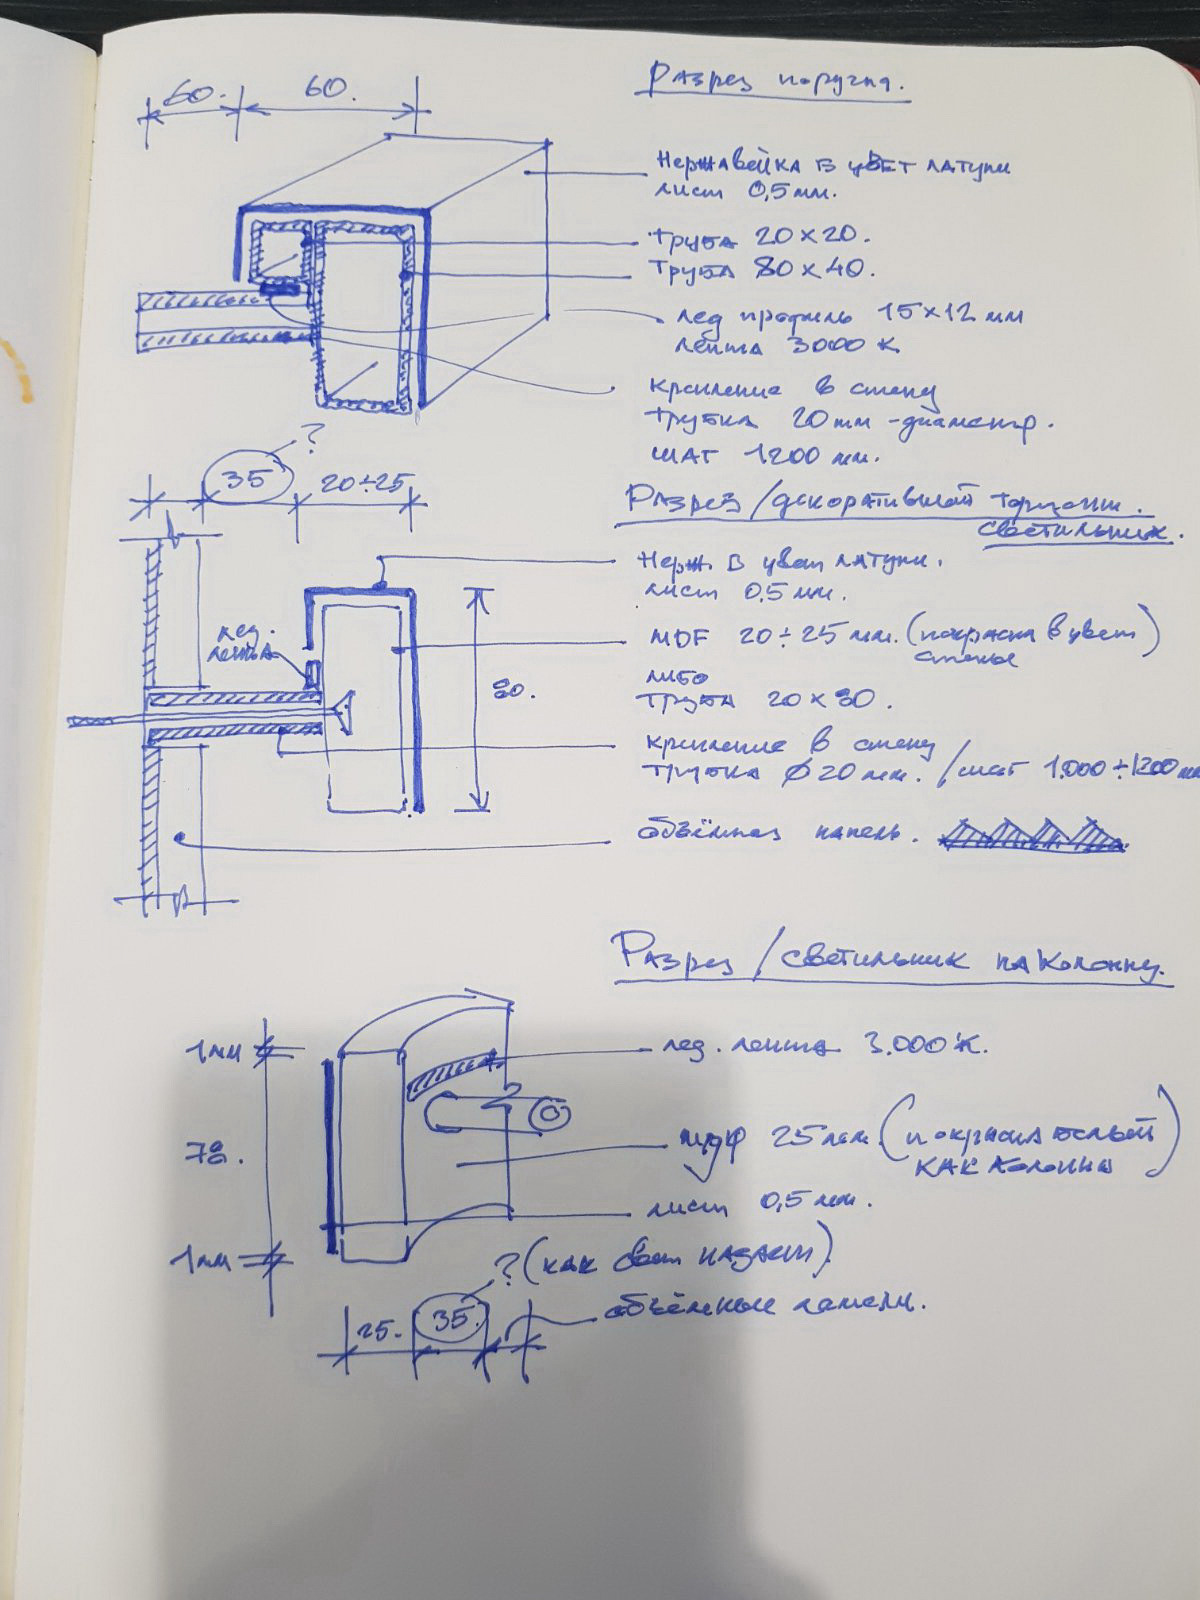 Разрез поручня.
60. 60.
Нержавейка в цвет латуни
лист 0,5 мм.
труба 20×20.
труба 80×40.
лед профиль 15×12 мм
лента 3000 К
крепление в стену
трубка 20мм - диаметр.
шаг 1200 мм.
35 ? 20÷25
Разрез/декоративный торшон.
светильник.
Нерж. в цвет латуни.
лист 0,5 мм.
лед.
лента
MDF 20÷25 мм. (покраска в цвет
стены)
либо
труба 20×80.
80.
крепление в стену
трубка Ø20мм. /шаг 1.000÷1200мм
объёмная панель.
Разрез/светильник на колонну.
1мм
лед. лента 3.000 К.
78.
мдф 25мм. (покрашен белый
как колонна)
лист 0,5 мм.
1мм
? (как свет падает)
25. 35.
объёмные панели.